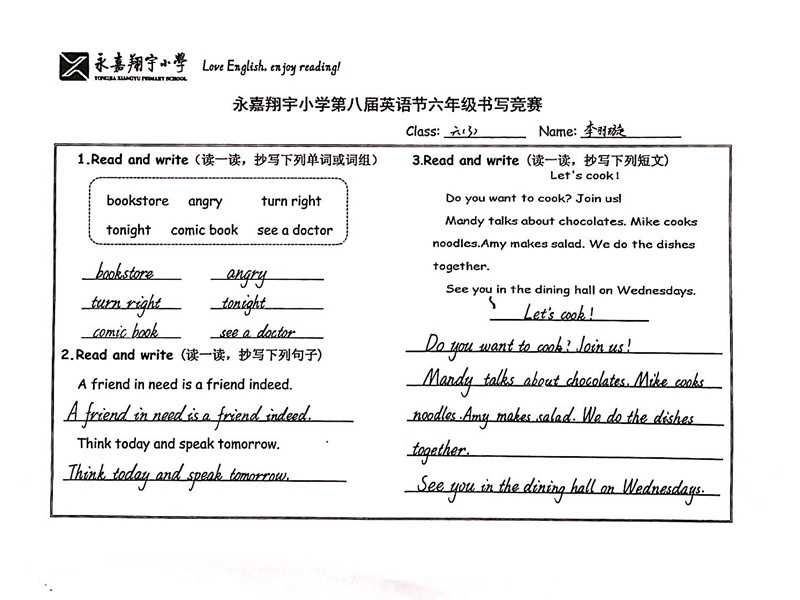 永嘉翔宇小學
YONGJIA XIANGYU PRIMARY SCHOOL
Love English, enjoy reading!
永嘉翔宇小学第八届英语节六年级书写竞赛
Class: 六(3) Name: 李羽璇
1.Read and write（读一读，抄写下列单词或词组）
bookstore angry turn right
tonight comic book see a doctor
bookstore angry
turn right tonight
comic book see a doctor
2.Read and write（读一读，抄写下列句子）
A friend in need is a friend indeed.
A friend in need is a friend indeed.
Think today and speak tomorrow.
Think today and speak tomorrow.
3.Read and write（读一读，抄写下列短文）
Let's cook!
Do you want to cook? Join us!
Mandy talks about chocolates. Mike cooks
noodles.Amy makes salad. We do the dishes
together.
See you in the dining hall on Wednesdays.
Let's cook!
Do you want to cook? Join us!
Mandy talks about chocolates. Mike cooks
noodles.Amy makes salad. We do the dishes
together.
See you in the dining hall on Wednesdays.